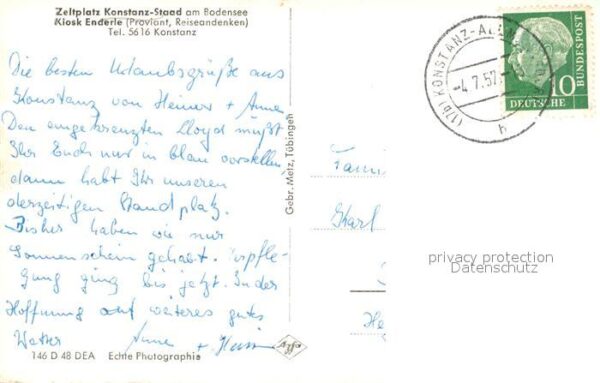 Zeltplatz Konstanz-Staad am Bodensee
Kiosk Enderle (Proviant, Reiseandenken)
Tel. 5616 Konstanz
Die besten Urlaubsgrüße aus
Konstanz von Heiner + Anne
Den eingekreuzten Lloyd müßt
Ihr Euch nur in blau vorstellen
dann habt Ihr unseren
derzeitigen Standplatz.
Bisher haben wir nur
Sonnenschein gehabt. Verpfle-
gung ging bis jetzt. In der
Hoffnung auf weiteres gutes
Wetter Anne
+ Heiner
146 D 48 DEA Echte Photographie
Gebr. Metz, Tübingen
(17b) KONSTANZ
-4.7.57
h
10
DEUTSCHE
BUNDESPOST
Fami
Karl
privacy protection
Datenschutz